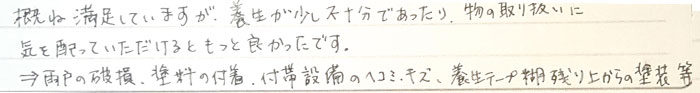 概ね満足していますが、養生が少し不十分であったり、物の取り扱いに
気を配っていただけるともっと良かったです。
⇒雨戸の破損、塗料の付着、付帯設備のヘコミ、キズ、養生テープ糊残り上からの塗装 等